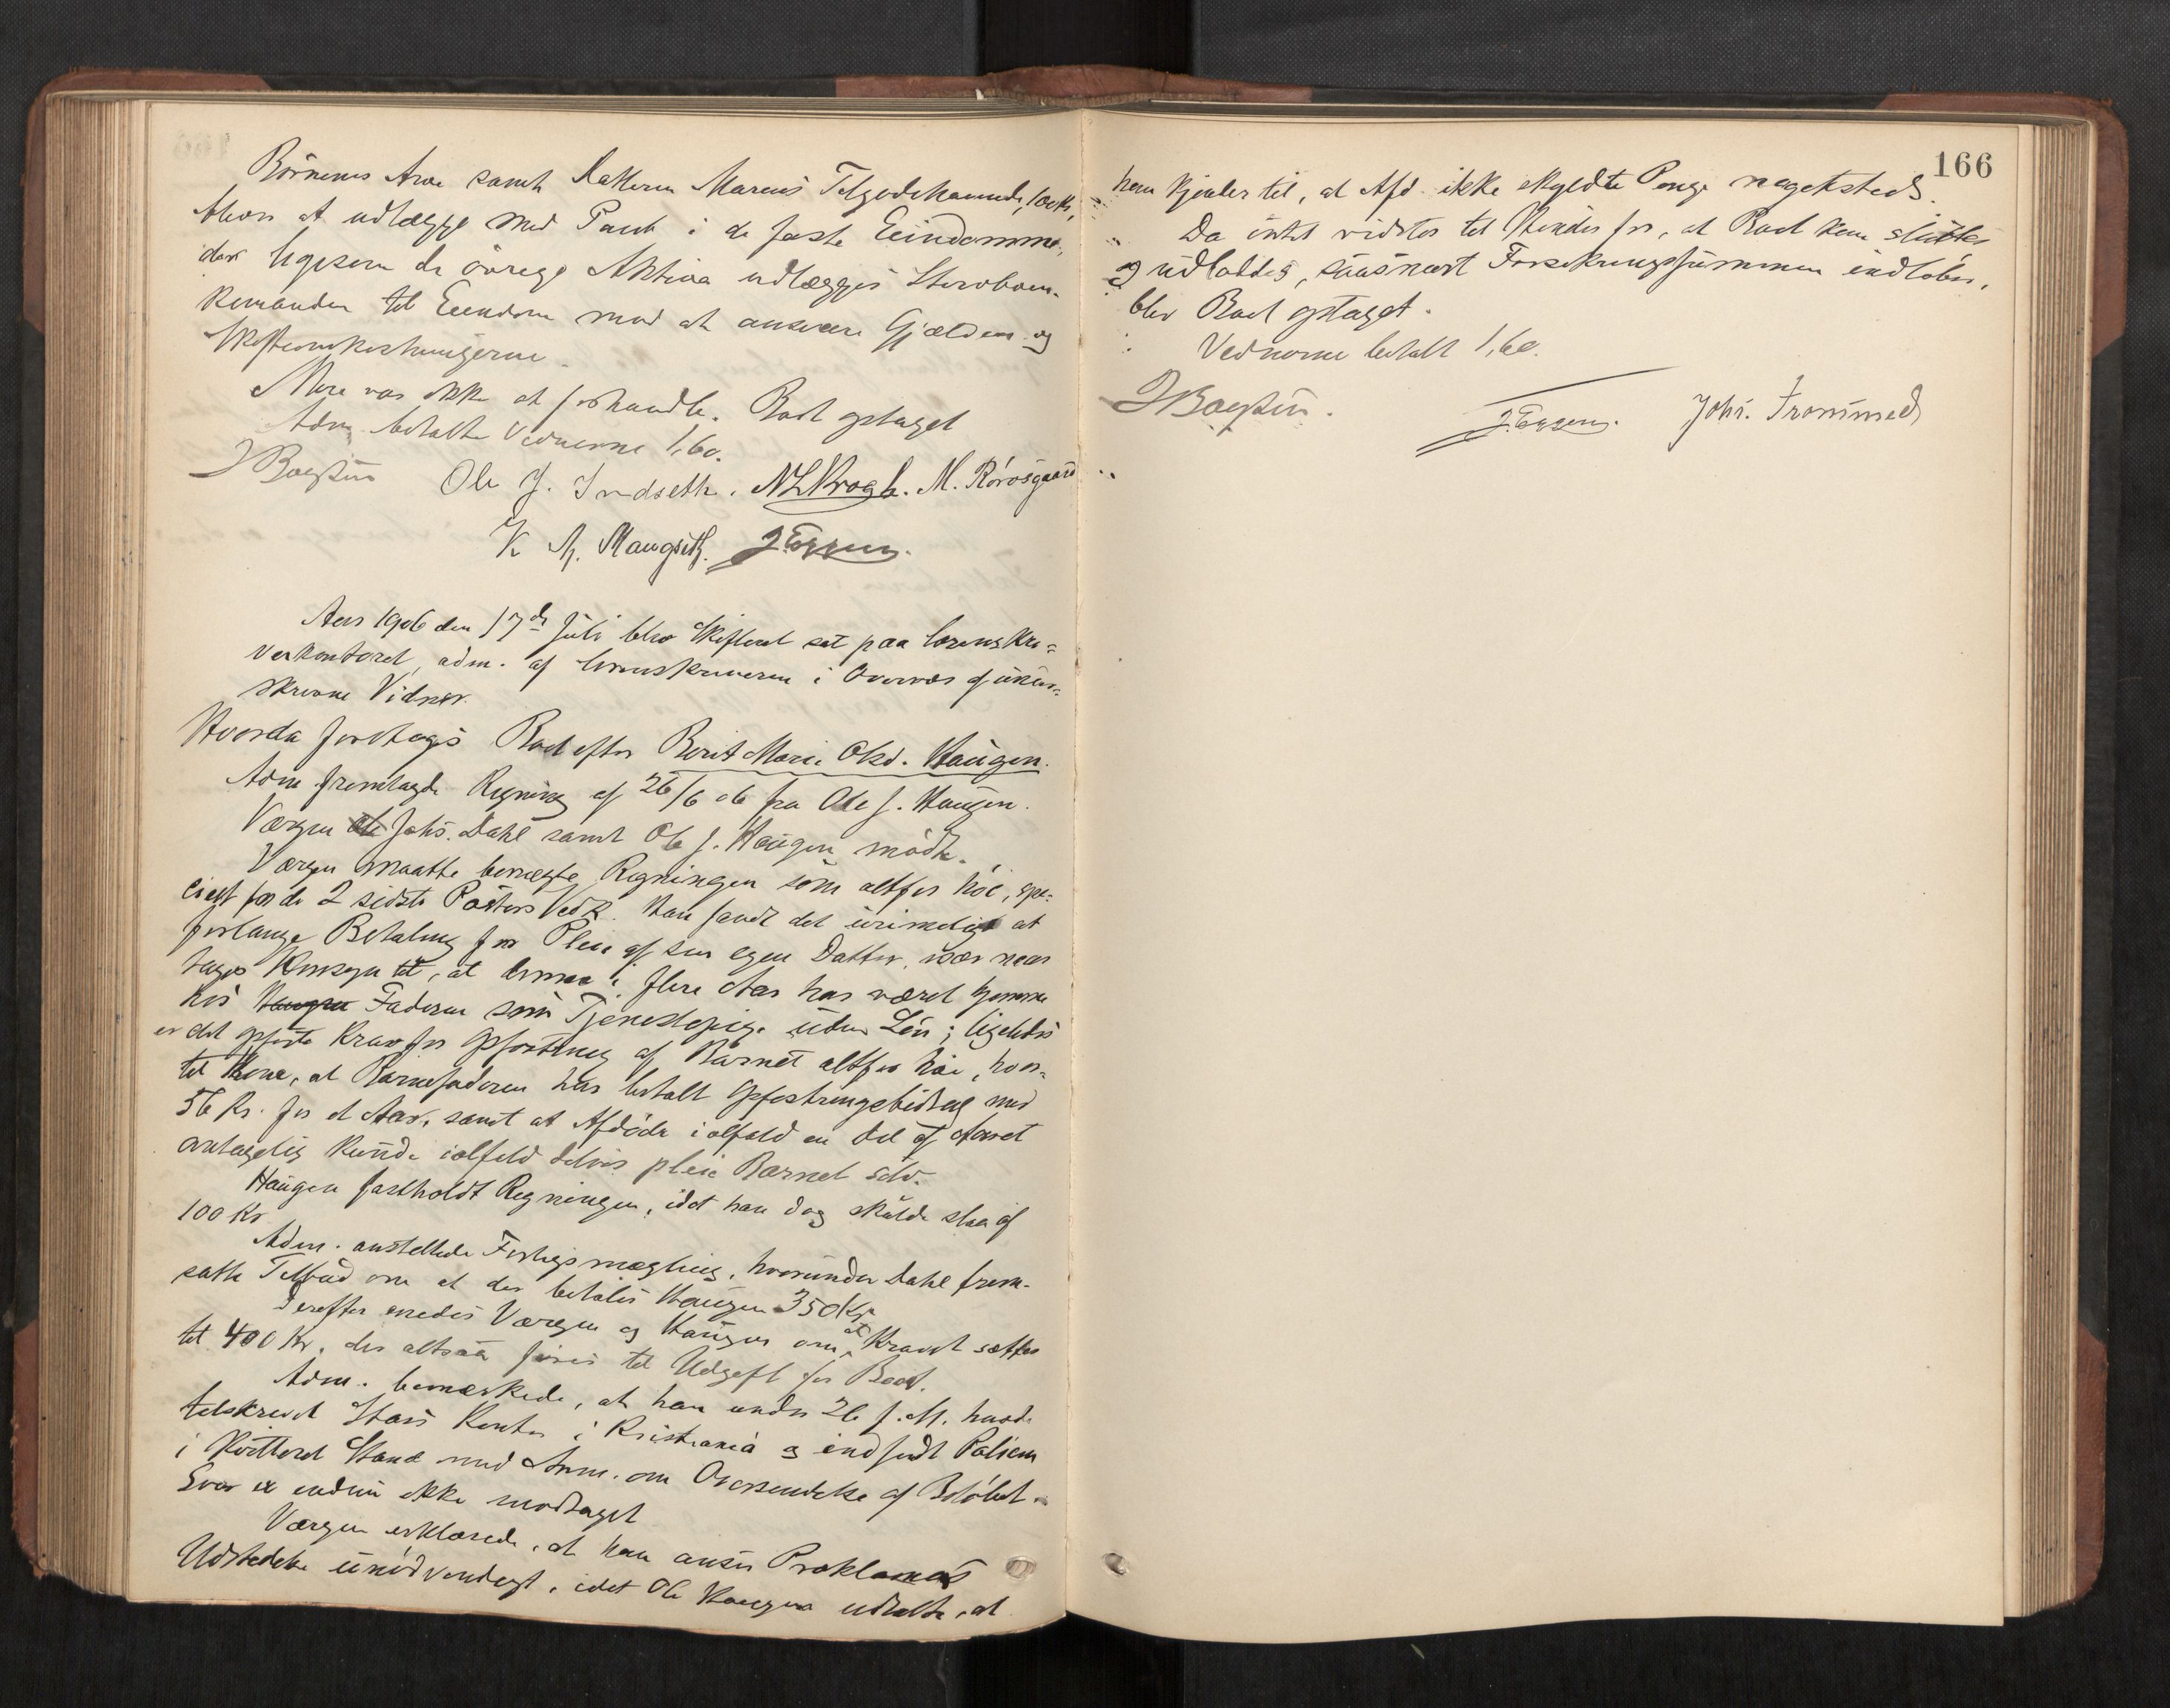 Börnenes Arv samt Datteren Marens Tilgodehavende, 100 Kr,
bliver at udlægge med Pant i de faste Eiendomme,
der ligesom de övrige Aktiva udlægges Stervboen-
kemanden til Eiendom mod at ansvare Gjælden og
Skifteomkostningerne.
Mere var ikke at forhandle. Boet optaget
Adm. betalte Vidnerne 1,60.
Ole J. Indseth. N L Krogh. M. Rörosgaard
K A. Haugseth.
Aar 1906 den 17de Juli blev Skifteret sat paa Sorenskri-
verkontoret, adm. af Sorenskriveren i Overvær af under-
skrevne Vidner.
Hvorda foretoges Boet efter Berit Marie Olsd. Haugen.
Adm fremlagde Regning af 26/6 06 fra Ole J. Haugen.
Værgen Ole Johs. Dahl samt Ole J. Haugen mödte.
Værgen maatte benægte Regningen som altfor höi, spe-
cielt for de 2 sidste Posters Vedk. Han fandt det urimeligt at
forlange Betaling for Pleie af sin egen Datter, især naar
tages Hensyn til, at denne i flere Aar har været hjemme
hos Haugen Faderen som Tjenestepige uden Lön; ligeledes
er det opförte Krav for Opfostring af Barnet altfor höi, hvor-
til kom, at Barnefaderen har betalt Opfostringsbidrag med
56 Kr. for et Aar, samt at Afdöde ialfald en Del af Aaret
antagelig kunde ialfald delvis pleie Barnet selv.
Haugen fastholdt Regningen, idet han dog skulde slaa af
100 Kr
Adm. anstillede Forligsmægling, hvorunder Dahl frem-
satte Tilbud om at der betales Haugen 350 Kr.
Derefter enedes Værgen og Haugen om at Kravet sættes
til 400 Kr, der altsaa föres til Udgift for Boet.
Adm. bemærkede, at han under 26 f. M. havde
tilskrevet Kontor i Kristiania og indsendt Policen
i kvitteret Stand med Anm. om Oversendelse af Belöbet.
Svar er endnu ikke modtaget
Værgen erklærede, at han anser Proklamas
Udstedelse unödvendigt, idet Ole Haugen udtalte, at
166
han kjender til, at Afd. ikke skyldte Penge nogetsteds.
Da intet vidstes til Hinder for, at Boet kan sluttes
og udloddes, saasnart Forsikringssummen indlöber,
blev Boet optaget.
Vidnerne betalt 1,60.
Johs. Trommed